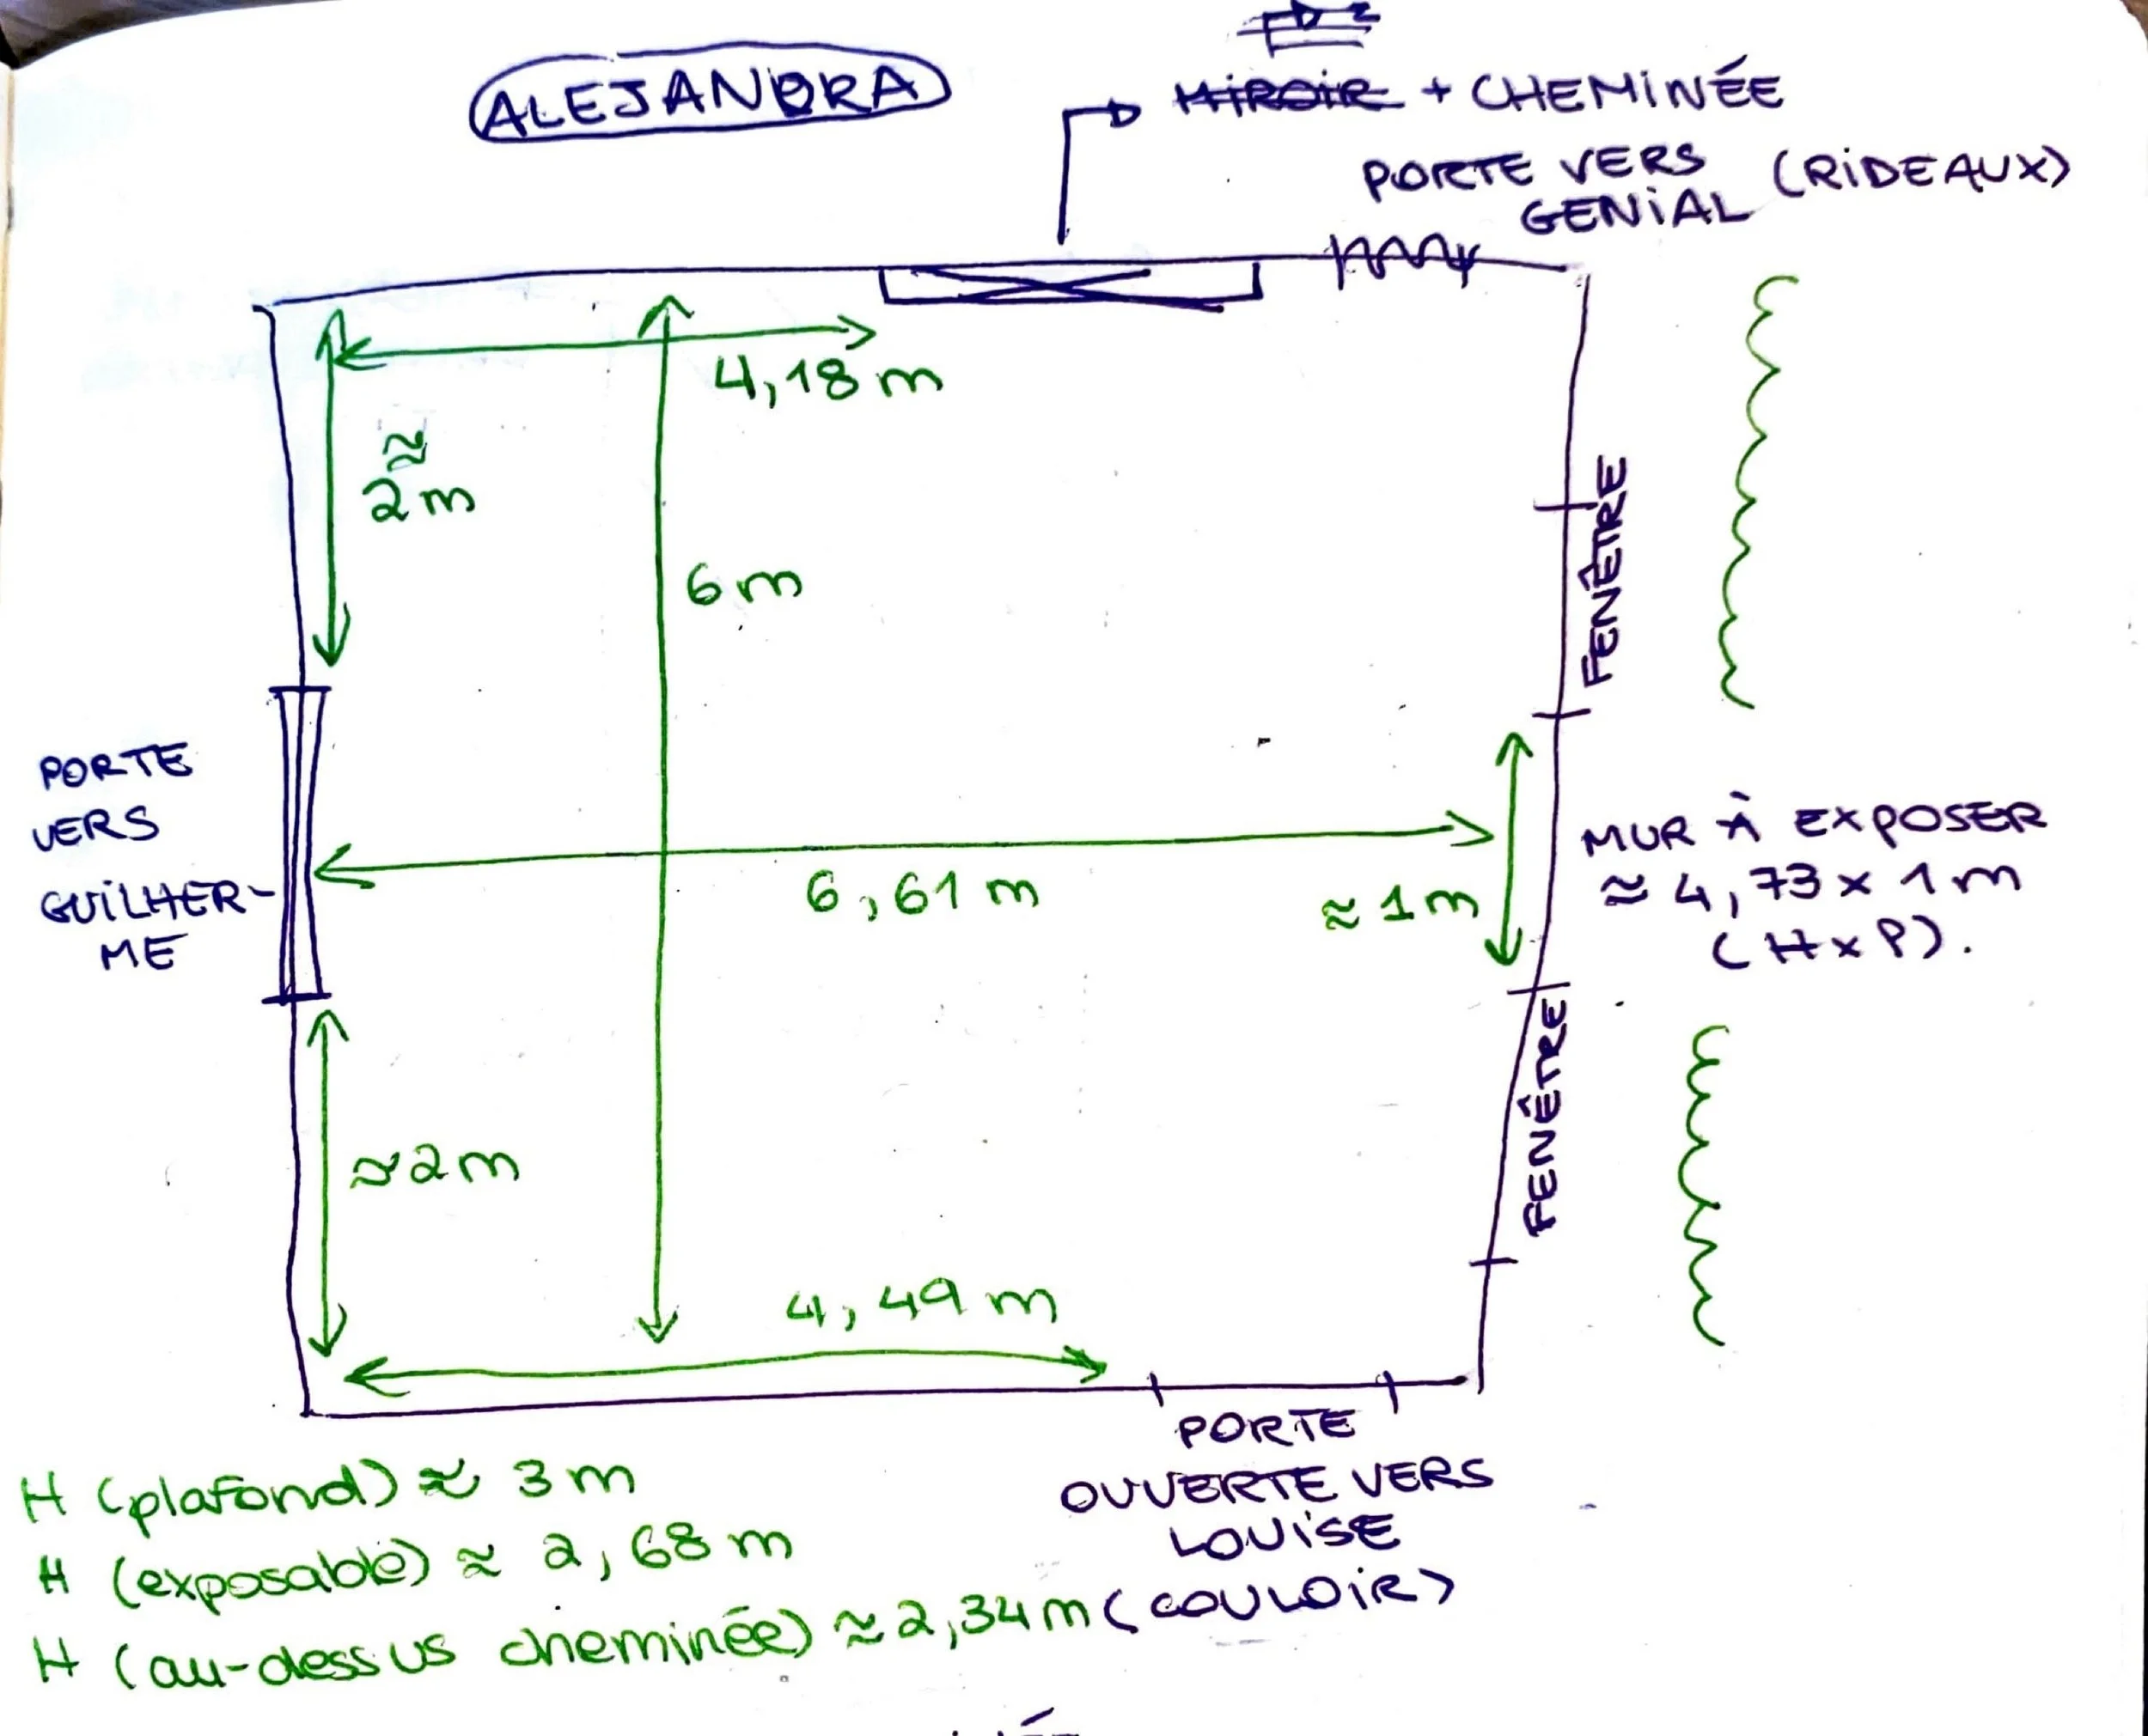 ALEJANDRA
MIROIR + CHEMINÉE
PORTE VERS (RIDEAUX)
GENIAL
4,18 m
≈
2 m
6 m
FENÊTRE
PORTE
VERS
GUILHER-
ME
6,61 m
≈ 1 m
MUR À EXPOSER
≈ 4,73 x 1 m
(H x P).
FENÊTRE
≈ 2 m
4,49 m
PORTE
OUVERTE VERS
LOUISE
(COULOIR)
H (plafond) ≈ 3 m
H (exposable) ≈ 2,68 m
H (au-dessus cheminée) ≈ 2,34 m